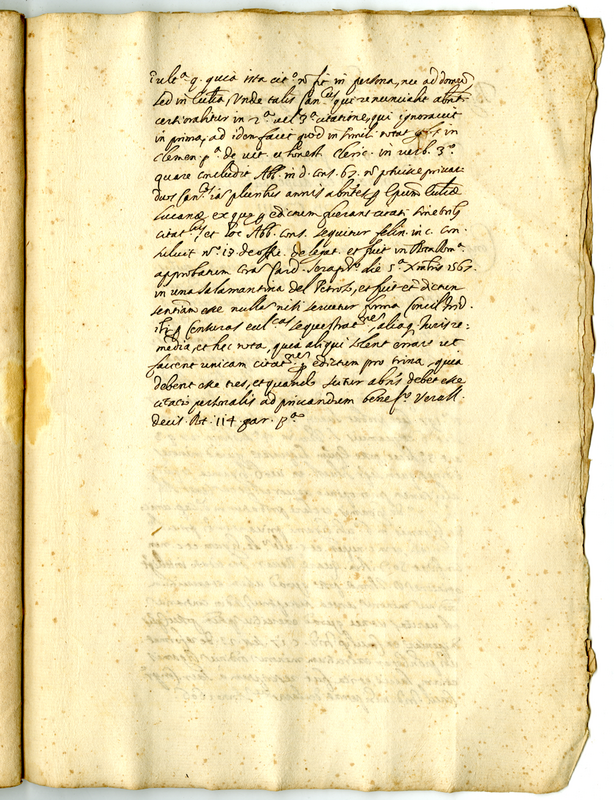 q. quia ista cit.o n fit in persona, nec ad domum
sed in Ecclia, Unde talis Can.cus qui renunciabit absit
certiorabitur in 2.a vel 3.a citatione, qui ignoravit
in prima, ad idem facet quod in simili notat gl. in
Clemen. p.a de vit. et honest. Cleric. in verb. 3.o
quare concludit Abb. in d. cons. 63. n potuisse privar
duos Can.cos iam pluribus annis abntes p Epum Ecclae
Lucanae, ex quo p edictum fuerant citati sine tribus
citat.bus et hoc Abb. cons. sequitur felin. in c. con
suluit n.o 13. de offic. delegat. et fuit in Rota Rom.a
approbatum coram Card. Seraph.o die 5.a Xmbris 1567.
in una Salamantina del Petroso, et fuit et dictum
sententiam esse nullam nisi servetur forma Concil. Trid.
p censuras eccl.cas sequestrat.nes, aliaq. Iuris re
media, et hoc nota, quia aliqui solent errare ut
faciunt unicam citat.nem p edictum pro trina, quia
debent esse tres, et quando scitur absns debet esse
citatio personalis ad privandum benef.o Verall.
decis. Rot. 114. par. 3.a